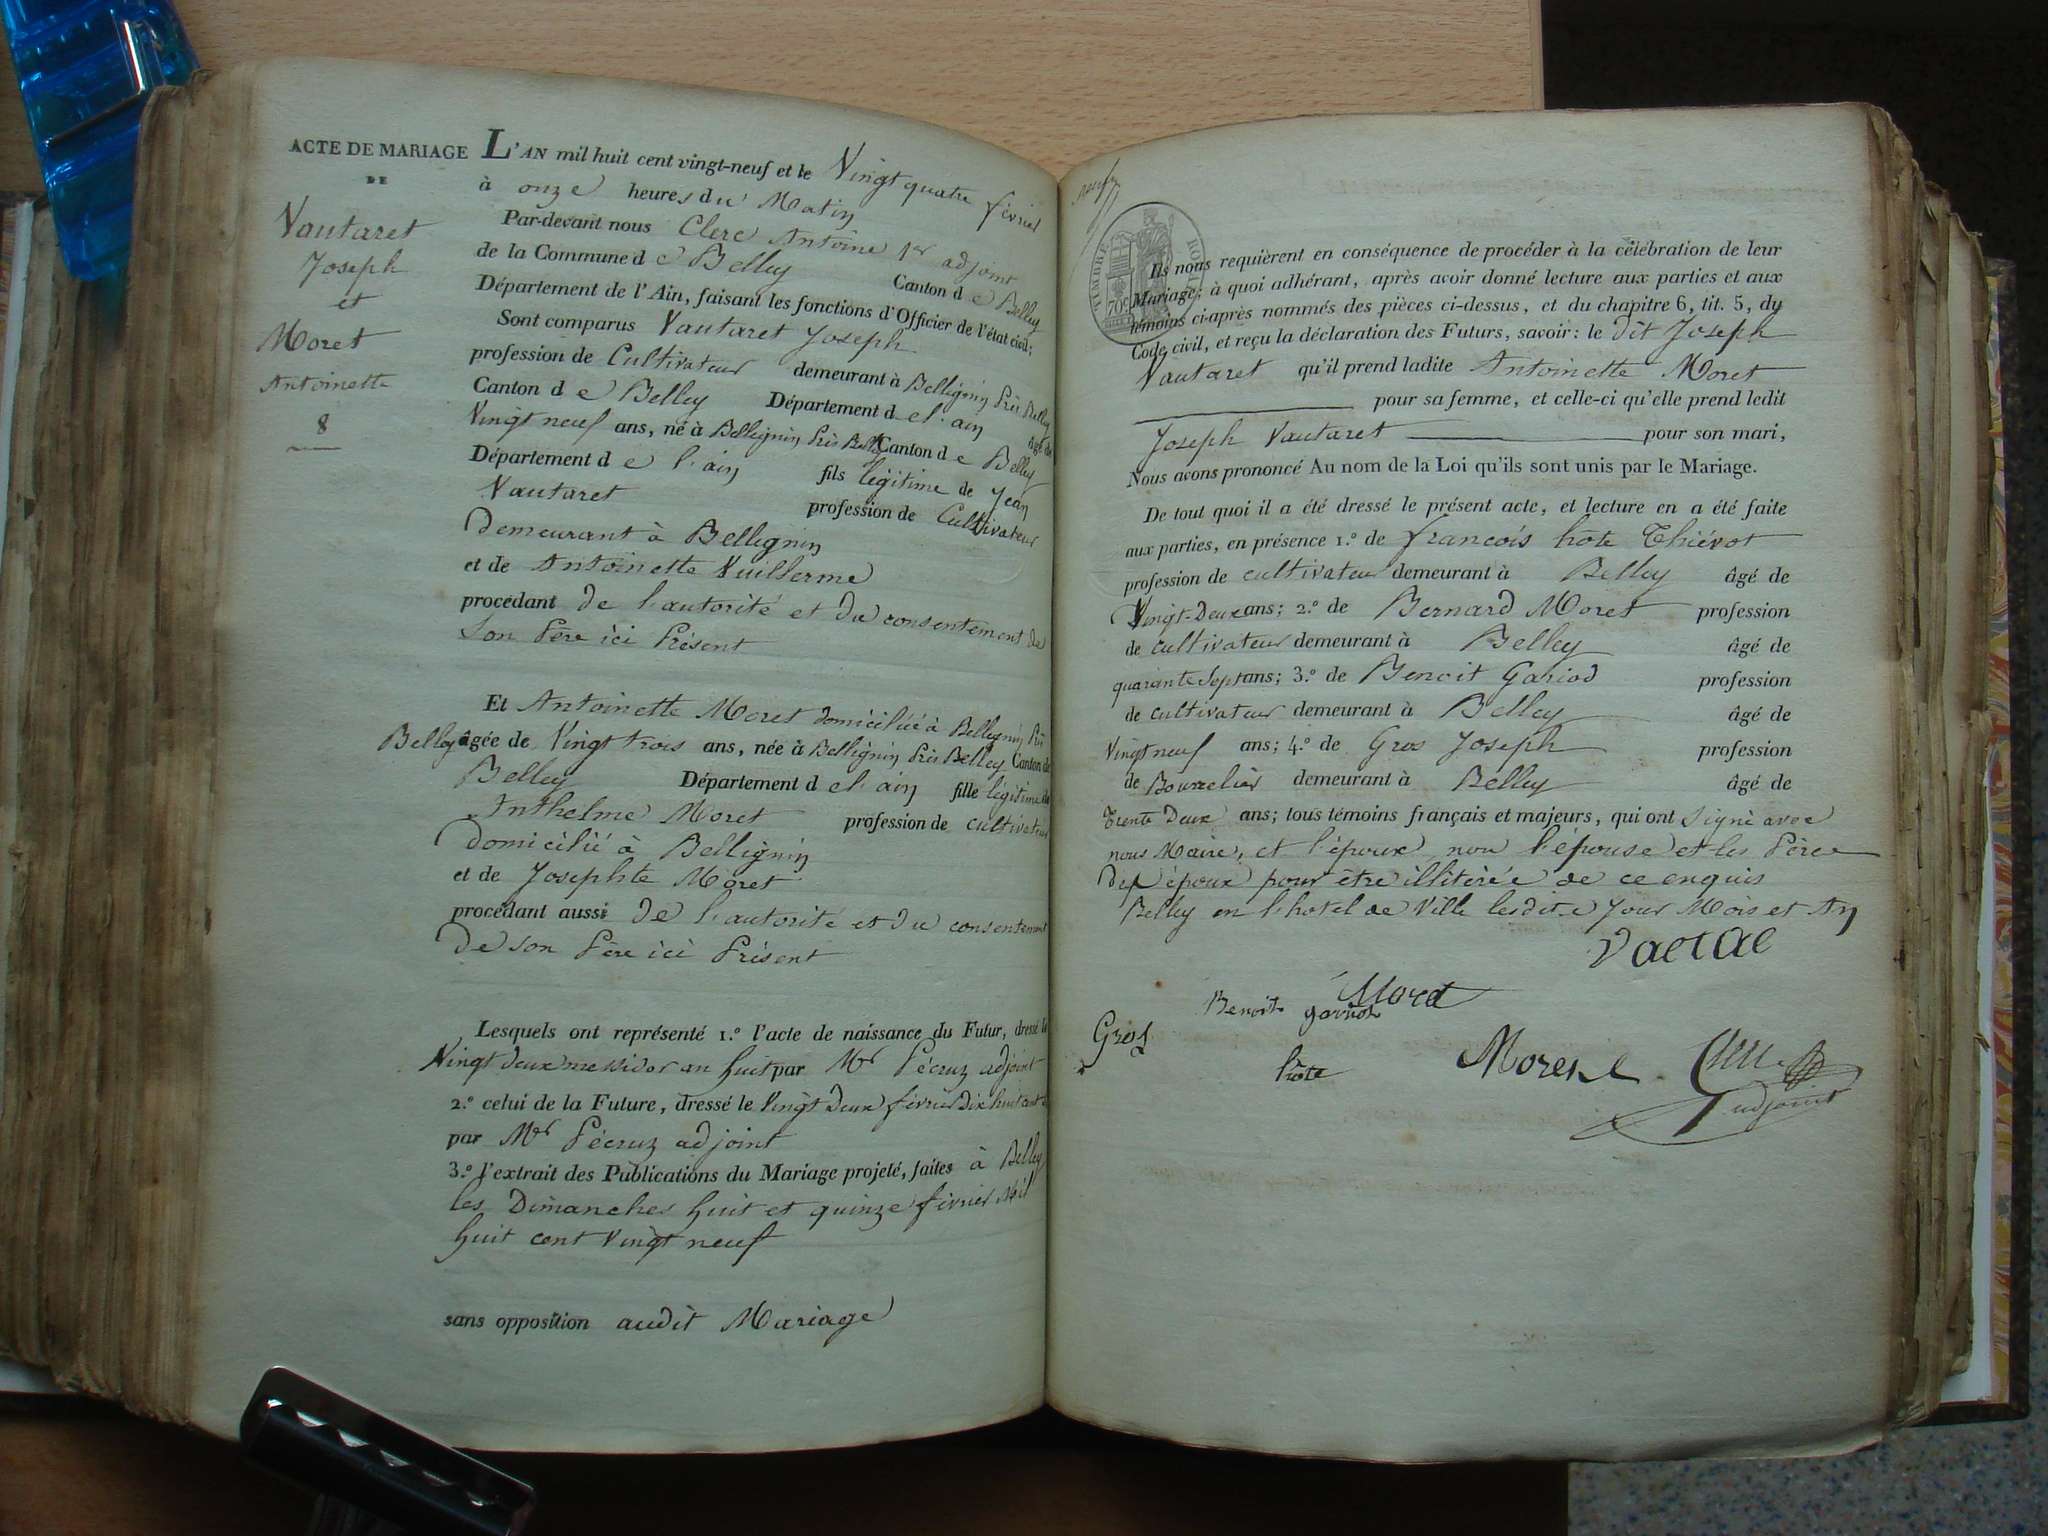 ACTE DE MARIAGE
DE
Vautaret
Joseph
et
Moret
Antoinette
8
L'AN mil huit cent vingt-neuf et le Vingt quatre février
à onze heures du Matin
Par-devant nous Clerc Antoine 1er adjoint
de la Commune de Belley Canton de Belley
Département de l'Ain, faisant les fonctions d'Officier de l'état civil;
Sont comparus Vautaret Joseph
profession de Cultivateur demeurant à Bellignin Près Belley
Canton de Belley Département de l'ain âgé de
Vingt neuf ans, né à Bellignin Près Belley Canton de Belley
Département de l'ain fils légitime de Jean
Vautaret profession de Cultivateur
demeurant à Bellignin
et de Antoinette Vuillerme
procédant de l'autorité et du consentement de
Son Père ici Présent
Et Antoinette Moret domiciliée à Bellignin Près
Belley âgée de Vingt trois ans, née à Bellignin Près Belley Canton de
Belley Département de l'ain fille légitime de
Anthelme Moret profession de cultivateur
domicilié à Bellignin
et de Josephte Moret
procédant aussi de l'autorité et du consentement
de son Père ici Présent
Lesquels ont représenté 1.º l'acte de naissance du Futur, dressé le
Vingt deux messidor an huit par Mr Pécruz adjoint
2.º celui de la Future, dressé le Vingt Deux février Dix huit cent
par Mr Pécruz adjoint
3.º l'extrait des Publications du Mariage projeté, faites à Belley
les Dimanches huit et quinze février Mil
huit cent Vingt neuf
sans opposition audit Mariage
TIMBRE ROYAL
70c
Ils nous requièrent en conséquence de procéder à la célébration de leur
Mariage; à quoi adhérant, après avoir donné lecture aux parties et aux
témoins ci-après nommés des pièces ci-dessus, et du chapitre 6, tit. 5, du
Code civil, et reçu la déclaration des Futurs, savoir: le dit Joseph
Vautaret qu'il prend ladite Antoinette Moret
pour sa femme, et celle-ci qu'elle prend ledit
Joseph Vautaret pour son mari,
Nous avons prononcé Au nom de la Loi qu'ils sont unis par le Mariage.
De tout quoi il a été dressé le présent acte, et lecture en a été faite
aux parties, en présence 1.º de francois hote Thiévot
profession de cultivateur demeurant à Belley âgé de
Vingt-Deux ans; 2.º de Bernard Moret profession
de cultivateur demeurant à Belley âgé de
quarante Sept ans; 3.º de Benoit Gariod profession
de cultivateur demeurant à Belley âgé de
Vingt neuf ans; 4.º de Gros Joseph profession
de Bourrelier demeurant à Belley âgé de
Trente Deux ans; tous témoins français et majeurs, qui ont Signé avec
nous Maire, et l'époux non l'épouse et les Pères
des époux pour être illitérée de ce enquis
Belley en l'hotel de Ville lesdits Jour Mois et An
Moret
Benoit garriot
Gros
hote
adjoint